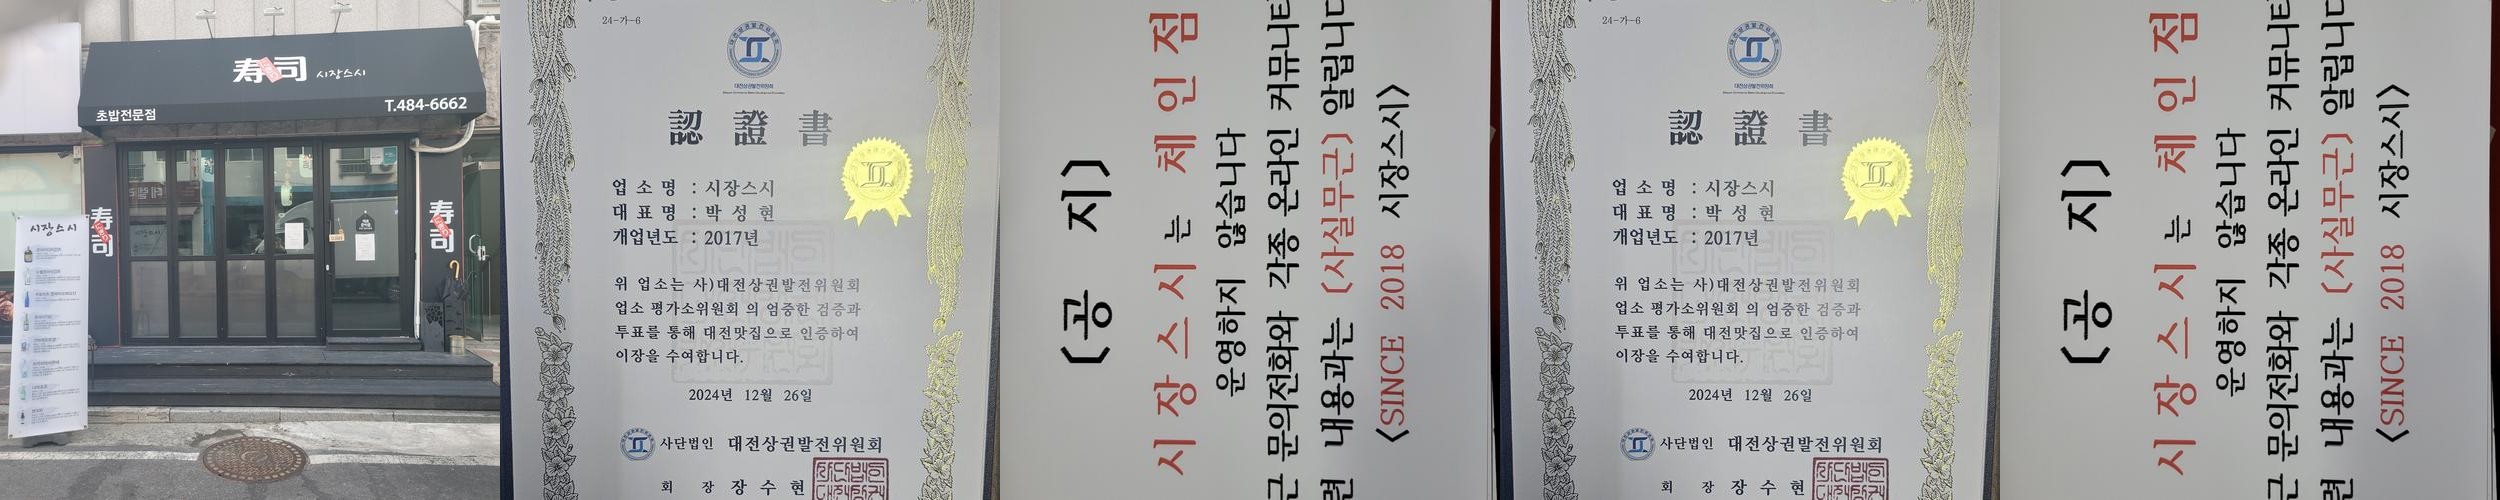 寿司 시장스시
초밥전문점
T.484-6662
寿司
寿司
시장스시
24-가-6
대전상권발전위원회
認證書
업소명 : 시장스시
대표명 : 박성현
개업년도 : 2017년
위 업소는 사)대전상권발전위원회
업소 평가소위원회 의 엄중한 검증과
투표를 통해 대전맛집으로 인증하여
이장을 수여합니다.
2024년 12월 26일
사단법인 대전상권발전위원회
회 장 장 수 현
(공 지)
시장스시는 체인점
운영하지 않습니다
근 문의전화와 각종 온라인 커뮤니티
련 내용과는 (사실무근) 알립니다
<SINCE 2018 시장스시>
24-가-6
대전상권발전위원회
認證書
업소명 : 시장스시
대표명 : 박성현
개업년도 : 2017년
위 업소는 사)대전상권발전위원회
업소 평가소위원회 의 엄중한 검증과
투표를 통해 대전맛집으로 인증하여
이장을 수여합니다.
2024년 12월 26일
사단법인 대전상권발전위원회
회 장 장 수 현
(공 지)
시장스시는 체인점
운영하지 않습니다
근 문의전화와 각종 온라인 커뮤니티
련 내용과는 (사실무근) 알립니다
<SINCE 2018 시장스시>